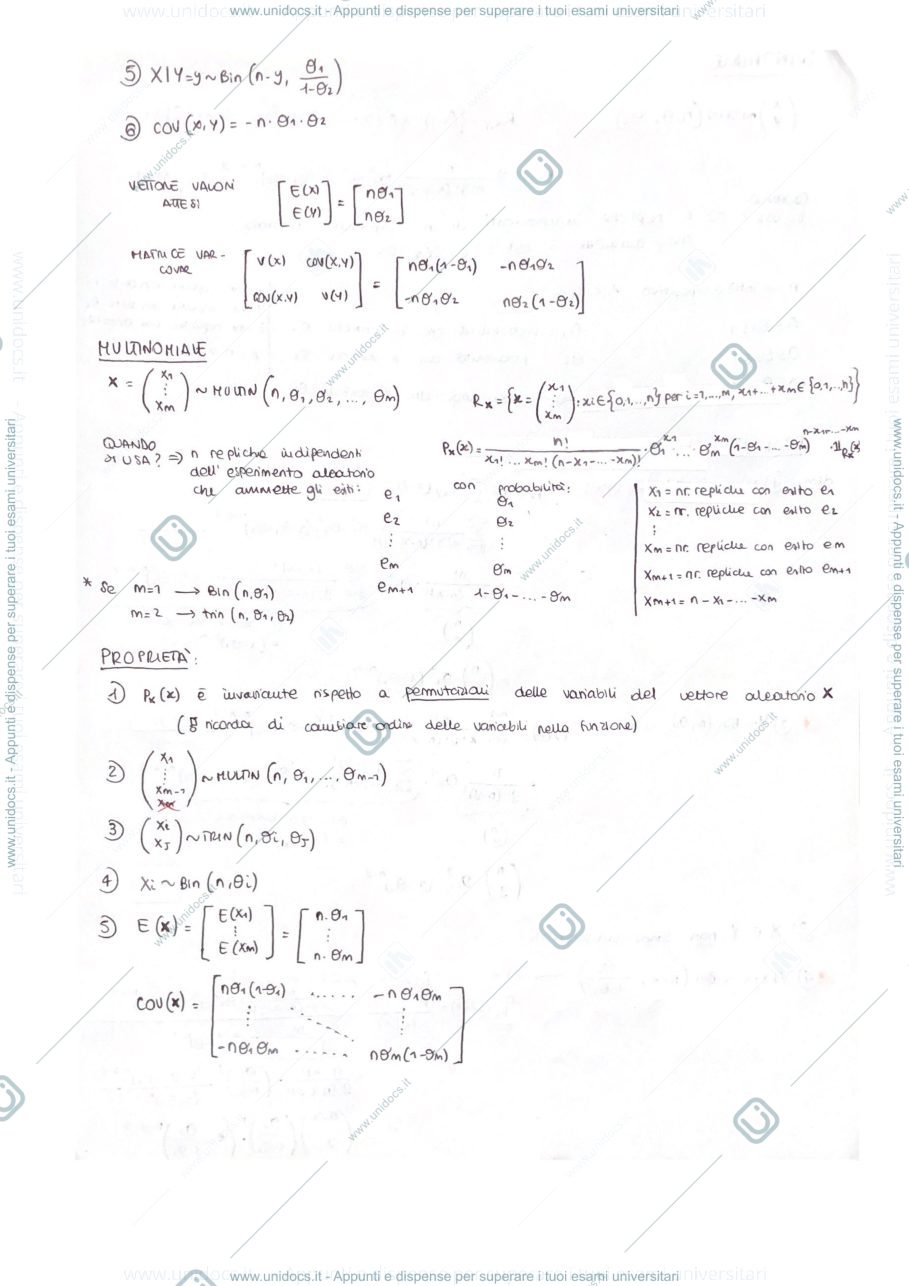 www.unidocs.it - Appunti e dispense per superare i tuoi esami universitari
5) X|Y=y ~ Bin (n-y, θ1/(1-θ2))
6) COV (X,Y) = - n · θ1 · θ2
VETTORE VALORI ATTESI [E(X) E(Y)] = [nθ1 nθ2]
MATRICE VAR-COVAR [V(X) COV(X,Y) COV(X,Y) V(Y)] = [nθ1(1-θ1) -nθ1θ2 -nθ1θ2 nθ2(1-θ2)]
MULTINOMIALE
X = (X1 ⋮ Xm) ~ MULTIN (n, θ1, θ2, ..., θm)
Rx = {x = (x1 ⋮ xm) : xi ∈ {0,1,..,n} per i=1,...,m, x1+...+xm ∈ {0,1,..,n}}
Px(x) = n! / (x1! ... xm! (n-x1-...-xm)!) · θ1^x1 ... θm^xm (1-θ1-...-θm)^(n-x1-...-xm) · 1Rx(x
QUANDO SI USA? => n repliche indipendenti
dell' esperimento aleatorio
che ammette gli esiti:
e1
e2
⋮
em
em+1
con probabilità:
θ1
θ2
⋮
θm
1-θ1-...-θm
X1 = nr. repliche con esito e1
X2 = nr. repliche con esito e2
⋮
Xm = nr. repliche con esito em
Xm+1 = nr. repliche con esito em+1
Xm+1 = n - X1 - ... - Xm
* Se m=1 → Bin (n, θ1)
m=2 → trin (n, θ1, θ2)
PROPRIETÀ:
1) Px(x) è invariante rispetto a permutazioni delle variabili del vettore aleatorio X
( ricorda di cambiare ordine delle variabili nella funzione)
2) (X1 ⋮ Xm-1 Xm) ~ MULTIN (n, θ1, ..., θm-1)
3) (Xi XJ) ~ TRIN (n, θi, θJ)
4) Xi ~ Bin (n, θi)
5) E(X) = [E(X1) ⋮ E(Xm)] = [n·θ1 ⋮ n·θm]
COV(X) = [nθ1(1-θ1) ...... -nθ1θm ⋮ ⋮ -nθ1θm ...... nθm(1-θm)]
www.unidocs.it - Appunti e dispense per superare i tuoi esami universitari